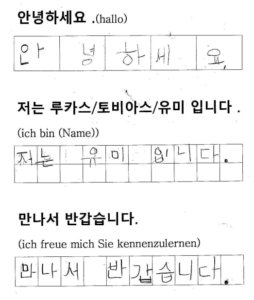 안녕하세요 .(hallo)
안 녕 하 세 요.
저는 루카스/토비아스/유미 입니다 .
(ich bin (Name))
저는 유미 입니다.
만나서 반갑습니다.
(ich freue mich Sie kennenzulernen)
만나서 반갑습니다.